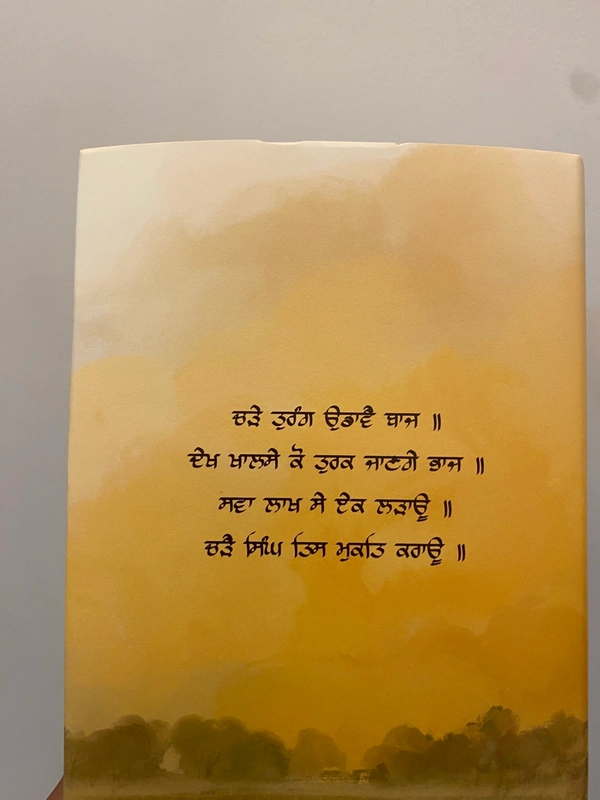 ਚੜੇ ਤੁਰੰਗ ਉਡਾਵੈ ਬਾਜ ॥
ਦੇਖ ਖਾਲਸੇ ਕੋ ਤੁਰਕ ਜਾਣਗੇ ਭਾਜ ॥
ਸਵਾ ਲਾਖ ਸੇ ਏਕ ਲੜਾਊ ॥
ਚੜੈ ਸਿੰਘ ਤਿਸ ਮੁਕਤਿ ਕਰਾਊ ॥